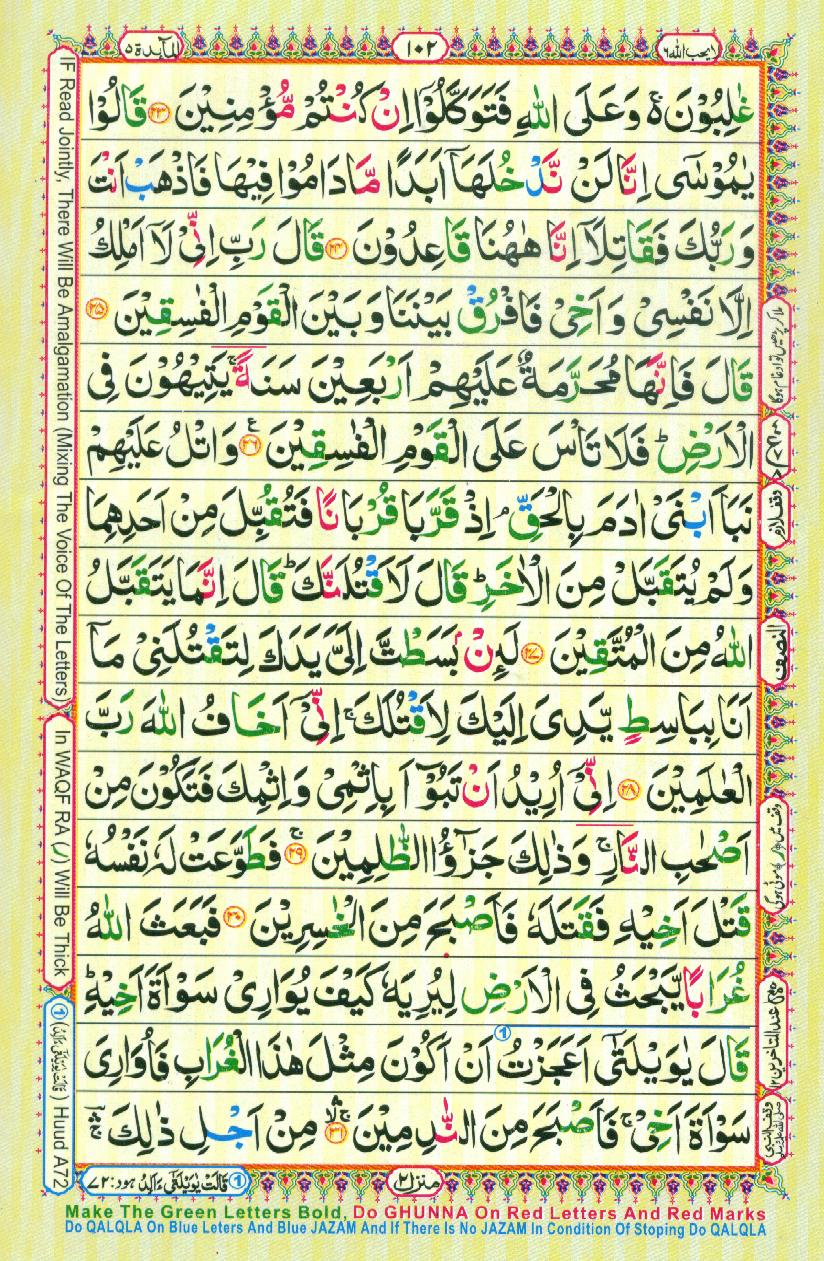 المآئدة ۵
۱۰۲
لا يحب الله ۶
غٰلِبُوْنَ ۚ۬ وَعَلَى اللّٰهِ فَتَوَكَّلُوْۤا اِنْ كُنْتُمْ مُّؤْمِنِيْنَ ۲۳ قَالُوْا
يٰمُوْسٰۤى اِنَّا لَنْ نَّدْخُلَهَاۤ اَبَدًا مَّا دَامُوْا فِيْهَا فَاذْهَبْ اَنْتَ
وَرَبُّكَ فَقَاتِلَاۤ اِنَّا هٰهُنَا قَاعِدُوْنَ ۲۴ قَالَ رَبِّ اِنِّيْ لَاۤ اَمْلِكُ
اِلَّا نَفْسِيْ وَاَخِيْ فَافْرُقْ بَيْنَنَا وَبَيْنَ الْقَوْمِ الْفٰسِقِيْنَ ۲۵
قَالَ فَاِنَّهَا مُحَرَّمَةٌ عَلَيْهِمْ اَرْبَعِيْنَ سَنَةً ۚ يَتِيْهُوْنَ فِي
الْاَرْضِ ؕ فَلَا تَاْسَ عَلَى الْقَوْمِ الْفٰسِقِيْنَ ۲۶ وَاتْلُ عَلَيْهِمْ
نَبَاَ ابْنَيْ اٰدَمَ بِالْحَقِّ ۘ اِذْ قَرَّبَا قُرْبَانًا فَتُقُبِّلَ مِنْ اَحَدِهِمَا
وَلَمْ يُتَقَبَّلْ مِنَ الْاٰخَرِ ؕ قَالَ لَاَقْتُلَنَّكَ ؕ قَالَ اِنَّمَا يَتَقَبَّلُ
اللّٰهُ مِنَ الْمُتَّقِيْنَ ۲۷ لَئِنْۢ بَسَطْتَّ اِلَيَّ يَدَكَ لِتَقْتُلَنِيْ مَاۤ
اَنَا بِبَاسِطٍ يَّدِيَ اِلَيْكَ لِاَقْتُلَكَ ۚ اِنِّيْۤ اَخَافُ اللّٰهَ رَبَّ
الْعٰلَمِيْنَ ۲۸ اِنِّيْۤ اُرِيْدُ اَنْ تَبُوْٓاَ بِاِثْمِيْ وَاِثْمِكَ فَتَكُوْنَ مِنْ
اَصْحٰبِ النَّارِ ۚ وَذٰلِكَ جَزٰٓؤُا الظّٰلِمِيْنَ ۚ ۲۹ فَطَوَّعَتْ لَهٗ نَفْسُهٗ
قَتْلَ اَخِيْهِ فَقَتَلَهٗ فَاَصْبَحَ مِنَ الْخٰسِرِيْنَ ۳۰ فَبَعَثَ اللّٰهُ
غُرَابًا يَّبْحَثُ فِي الْاَرْضِ لِيُرِيَهٗ كَيْفَ يُوَارِيْ سَوْاَةَ اَخِيْهِ ؕ
قَالَ يٰوَيْلَتٰۤى اَعَجَزْتُ اَنْ اَكُوْنَ مِثْلَ هٰذَا الْغُرَابِ فَاُوَارِيَ
سَوْاَةَ اَخِيْ ۚ فَاَصْبَحَ مِنَ النّٰدِمِيْنَ ۳۱ مِنْ اَجْلِ ذٰلِكَ
وقف لازم
النصف
IF Read Jointly, There Will Be Amalgamation (Mixing The Voice Of The Letters)
In WAQF RA (ر) Will Be Thick
Huud A72
منزل ۲
① قَالَتْ يٰوَيْلَتٰٓى ءَاَلِدُ هود: ۷۲
Make The Green Letters Bold, Do GHUNNA On Red Letters And Red Marks
Do QALQLA On Blue Leters And Blue JAZAM And If There Is No JAZAM In Condition Of Stoping Do QALQLA